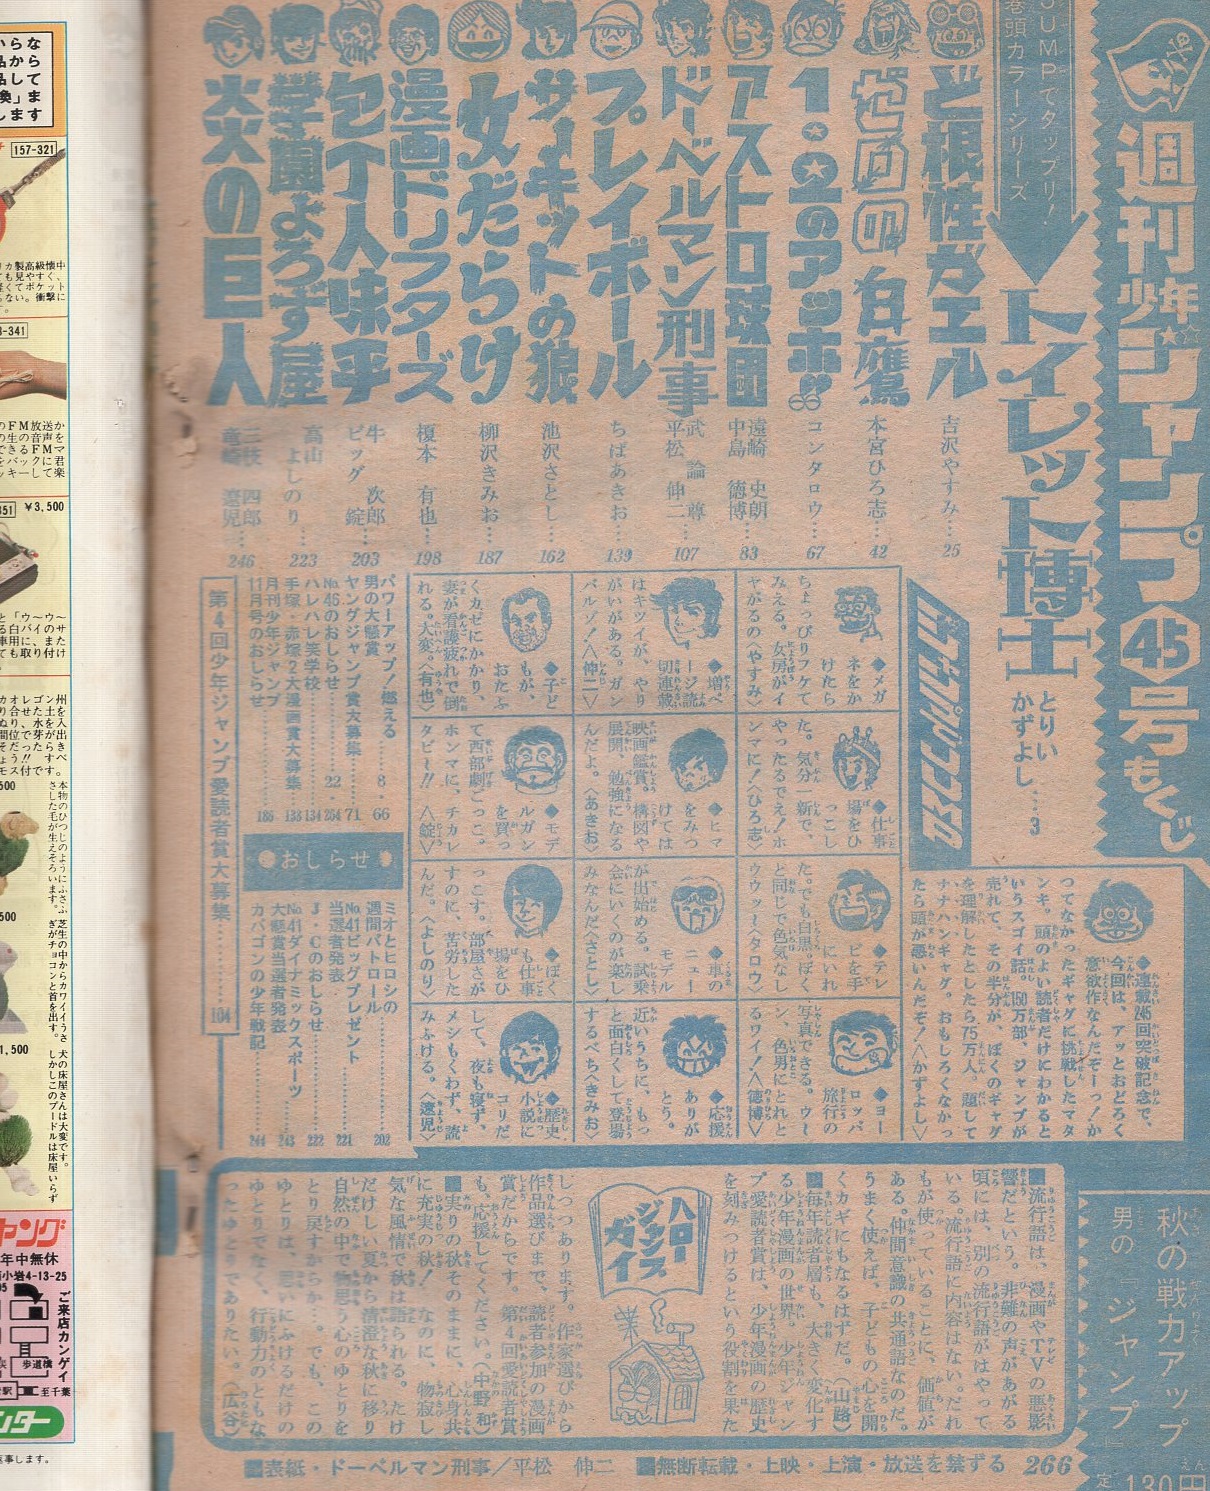 週刊少年ジャンプ㊺号もくじ
JUMPでタップリ!
巻頭カラーシリーズ
トイレット博士
とりい
かずよし…3
ど根性ガエル
吉沢やすみ…25
本宮ひろ志…42
1・★2のアッホ!!
コンタロウ…67
アストロ球団
遠崎 史朗
中島 徳博…83
ドーベルマン刑事
武 論 尊
平松 伸二…107
プレイボール
ちばあきお…139
サーキットの狼
池沢さとし…162
女だらけ
柳沢きみお…187
漫画ドリフターズ
榎本 有也…198
包丁人味平
牛 次郎
ビッグ 錠…203
学園よろず屋
高山 よしのり…223
炎の巨人
三枝 四郎
竜崎 遼児…246
◆連載245回突破記念で、
今回は、アッとおどろく
意欲作なんだぞーっ!か
つてなかったギャグに挑戦したマタ
ンキ。頭のよい読者だけにわかると
いうスゴイ話。150万部、ジャンプが
売れて、その半分が、ぼくのギャグ
を理解したとしたら75万人。題して
ナナハンギャグ。おもしろくなかっ
たら頭が悪いんだぞ!〈かずよし〉
◆メガ
ネをか
けたら
ちょっぴりフケて
みえる。女房がイ
ヤがるの〈やすみ〉
◆仕事
場をひ
っこし
た。気分一新で、
やったるでえ!ホ
ンマに!〈ひろ志〉
◆テレ
ビを手
にいれ
た。でも白黒。ぼく
と同じで色気なし
ウウッ〈コンタロウ〉
◆ヨー
ロッパ
旅行の
写真できる。ウ〜
ン、色男にとれと
るワイ!〈徳博〉
◆増ペ
ージ読
切連載
はキツイが、やり
がいがある。ガン
バルゾ!〈伸二〉
◆ヒマ
をみつ
けては
映画鑑賞。構図や
展開、勉強になる
んだよ。〈あきお〉
◆車の
ニュー
モデル
が出始める。試乗
会にいくのが楽し
みなんだ〈さとし〉
◆応援
ありが
とう。
近いうちに、もっ
と面白くして登場
するべち〈きみお〉
◆子ど
もが、
おたふ
くカゼにかかり、
妻が看護疲れで倒
れる。大変。〈有也〉
◆モデ
ルガン
を買っ
て西部劇ごっこ。
ホンマに、チカレ
タビー!!〈錠〉
◆ぼく
も仕事
場をひ
っこす。部屋さが
すのに、苦労した
んだ。〈よしのり〉
◆歴史
小説に
コリだ
して、夜も寝ず、
メシもくわず、読
みふける。〈遼児〉
パワーアップ!燃える
男の大懸賞…8・66
ヤングジャンプ賞大募集…71
No.46のおしらせ…22・264
ハレハレ笑学校…134
手塚・赤塚2大漫画賞大募集…138
月刊少年ジャンプ
11月号のおしらせ…186
●おしらせ●
ミオとヒロシの
週間パトロール…202
No.41ビッグプレゼント
当選者発表…221
J・Cのおしらせ…222
No.41ダイナミックスポーツ
大懸賞当選者発表…243
カバゴンの少年戦記…244
第4回少年ジャンプ愛読者賞大募集…104
ハロー
ジャンプ
ガイズ
■流行語は、漫画やTVの悪影
響だという。非難の声があがる
頃には、別の流行語がはやって
いる。流行語に内容はない。だれ
もが使っていることに、価値が
ある。仲間意識の共通語なのだ。
うまく使えば、子どもの心を開
くカギにもなるはずだ。〈山路〉
■毎年読者層も、大きく変化す
る少年漫画の世界。少年ジャン
プ愛読者賞は、少年漫画の歴史
を刻みつけるという役割を果た
しつつあります。作家選びから
作品選びまで、読者参加の漫画
賞だからです。第4回愛読者賞
も、応援してください。〈中野 和〉
■実りの秋そのままに、心身共
に充実の秋!なのに、物寂し
気な風情で秋は語られる。たけ
だけしい夏から清澄な秋に移り
自然の中で物思う心のゆとりを
とり戻すからか…。でも、この
ゆとりは、思いにふけるだけの
ゆとりでなく、行動力のともな
ったゆとりでありたい。〈広谷〉
秋の戦力アップ
男の「ジャンプ」
定
130円
■表紙・ドーベルマン刑事/平松 伸二 ■無断転載・上映・上演・放送を禁ずる 266
157-321
¥3,500
年中無休
小岩4-13-25
ご来店カンゲイ
歩道橋
至千葉